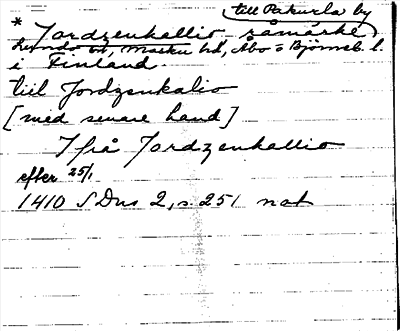 till Pakurla by
* Jordzenkallio råmärke
Lundo sn, Masku hd, Åbo o Björneb. l.
i Finland.
tiil Jordzenkalio
[med senare hand]
Ifrå Jordzenkallio
efter 25/1
1410 SDns 2, s. 251 not